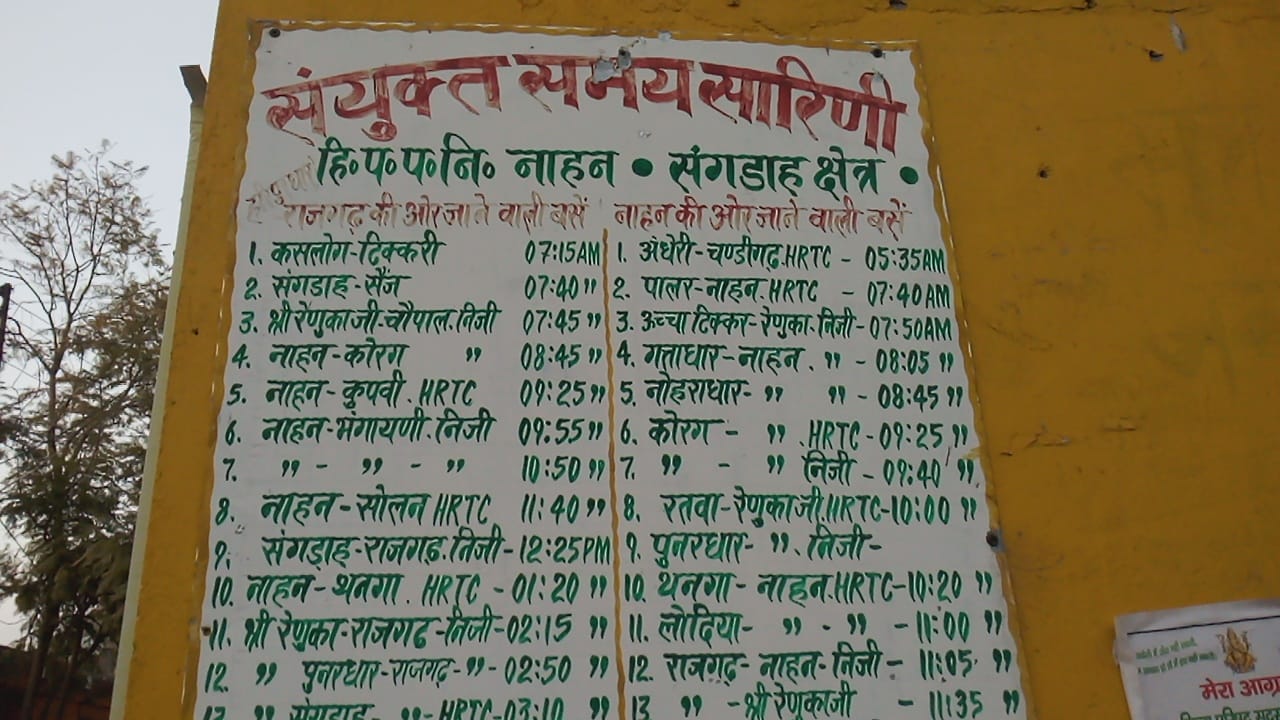 संयुक्त समय सारिणी
हि॰प॰प॰नि॰ नाहन • संगडाह क्षेत्र •
राजगढ़ की ओर जाने वाली बसें
1. कसलोग-टिक्करी 07:15AM
2. संगडाह-सैंज 07:40 "
3. श्री रेणुका जी-चौपाल.निजी 07:45 "
4. नाहन-कोरग " 08:45 "
5. नाहन-कुपवी. HRTC 09:25 "
6. नाहन-भंगायणी.निजी 09:55 "
7. " - " - " 10:50 "
8. नाहन-सोलन HRTC 11:40 "
9. संगड़ाह-राजगढ़.निजी-12:25PM
10. नाहन-थनगा. HRTC - 01:20 "
11. श्री रेणुका-राजगढ-निजी-02:15 "
12 " पुनरधार-राजगढ़-"-02:50 "
13 " संगडाह- "-HRTC-03:10 "
नाहन की ओर जाने वाली बसें
1. अंधेरी-चण्डीगढ़.HRTC - 05:35AM
2. पालर-नाहन.HRTC - 07:40AM
3. उच्चा टिक्कर-रेणुका.निजी-07:50AM
4. गत्ताधार-नाहन. " - 08:05 "
5. नोहराधार- " " - 08:45 "
6. कोरग - " .HRTC-09:25 "
7. " - " निजी - 09:40 "
8. रतवा-रेणुका जी.HRTC-10:00 "
9. पुनरधार- ". निजी-
10. थनगा- नाहन.HRTC-10:20 "
11. लोदिया- " - " - 11:00 "
12. राजगढ़-नाहन-निजी - 11:05 "
13 " -श्री रेणुका जी - 11:35 "
मेरा आग्र